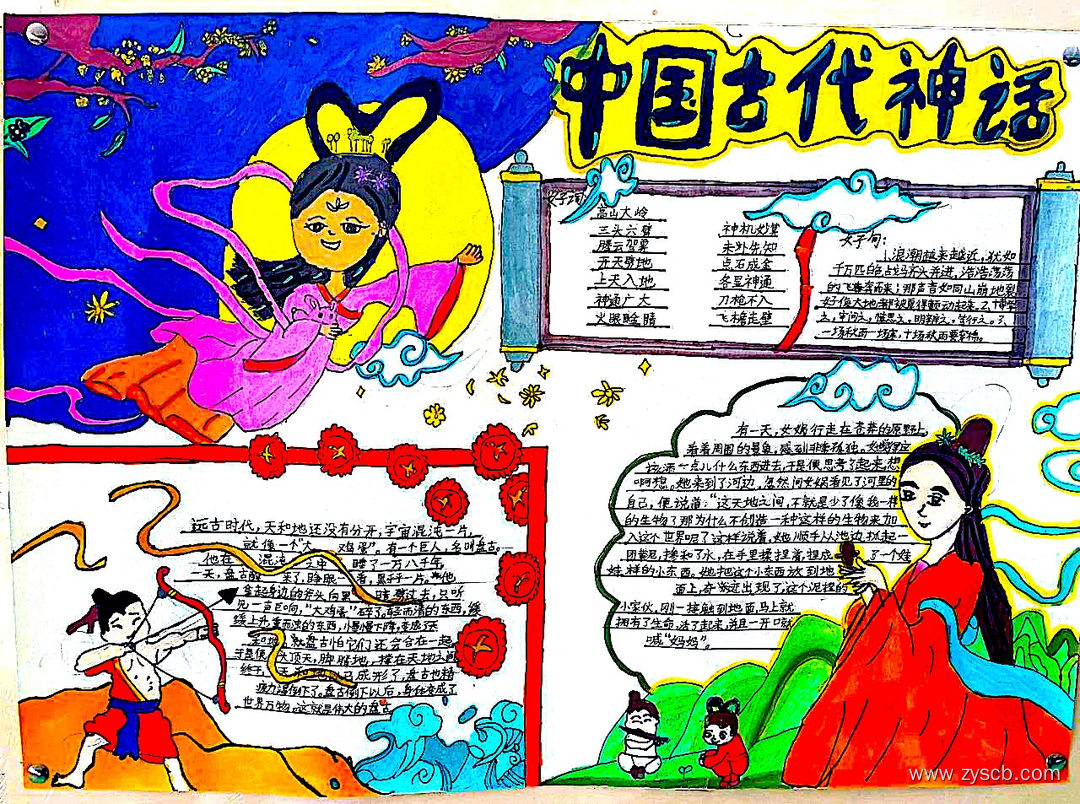 中国古代神话
好词:
高山大岭
三头六臂
腾云驾雾
开天劈地
上天入地
神通广大
火眼睑睛
神机妙算
未卜先知
点石成金
各显神通
刀枪不入
飞檐走壁
好句:
1.浪潮越来越近，犹如
千万匹白色战马齐头并进，浩浩荡荡
的飞奔而来；那声音如同山崩地裂
好像大地都被震得颤动起来。2.博学
之，审问之，慎思之，明辨之，笃行之。3.
一场秋雨一场寒，十场秋雨要穿棉。
远古时代，天和地还没有分开，宇宙混沌一片，
就像一个“大 鸡蛋”。有一个巨人，名叫盘古。
他在 混沌 之中 睡了一万八千年。
一天，盘古醒 来了，睁眼一看，黑乎乎一片，他
拿起身边的斧头向黑 暗劈过去，只听
见一声巨响，“大鸡蛋”碎了，轻而清的东西，缓
缓上升，重而浊的东西，慢慢下降，变成了
和地，就盘古怕它们还会合在一起
于是便 头顶天，脚踏地，撑在天地之间
终于，天和地 已成形了，盘古也精
疲力竭倒下了。盘古倒下以后，身体变成了
世界万物。这就是伟大的盘古
有一天，女娲行走在苍莽的原野上，
看着周围的景象，感到非常孤独。她觉得应
该添一点儿什么东西进去，于是便思考了起来，想
啊想。她来到了河边，忽然间女娲看见了河里的
自己，便说道：“这天地之间，不就是少了像我一样
的生物了那为什么不创造一种这样的生物来加
入这个世界呢了这样说着，她顺手从池边抓起一
团黄泥，掺和了水，在手里揉捏着，捏成 了一个娃
娃样的小东西。她把这个小东西放到地
面上，奇迹出现了，这个泥捏的
小家伙，刚一接触到地面，马上就
拥有了生命，活了起来，并且一开口就
喊“妈妈”。
www.zyscb.com